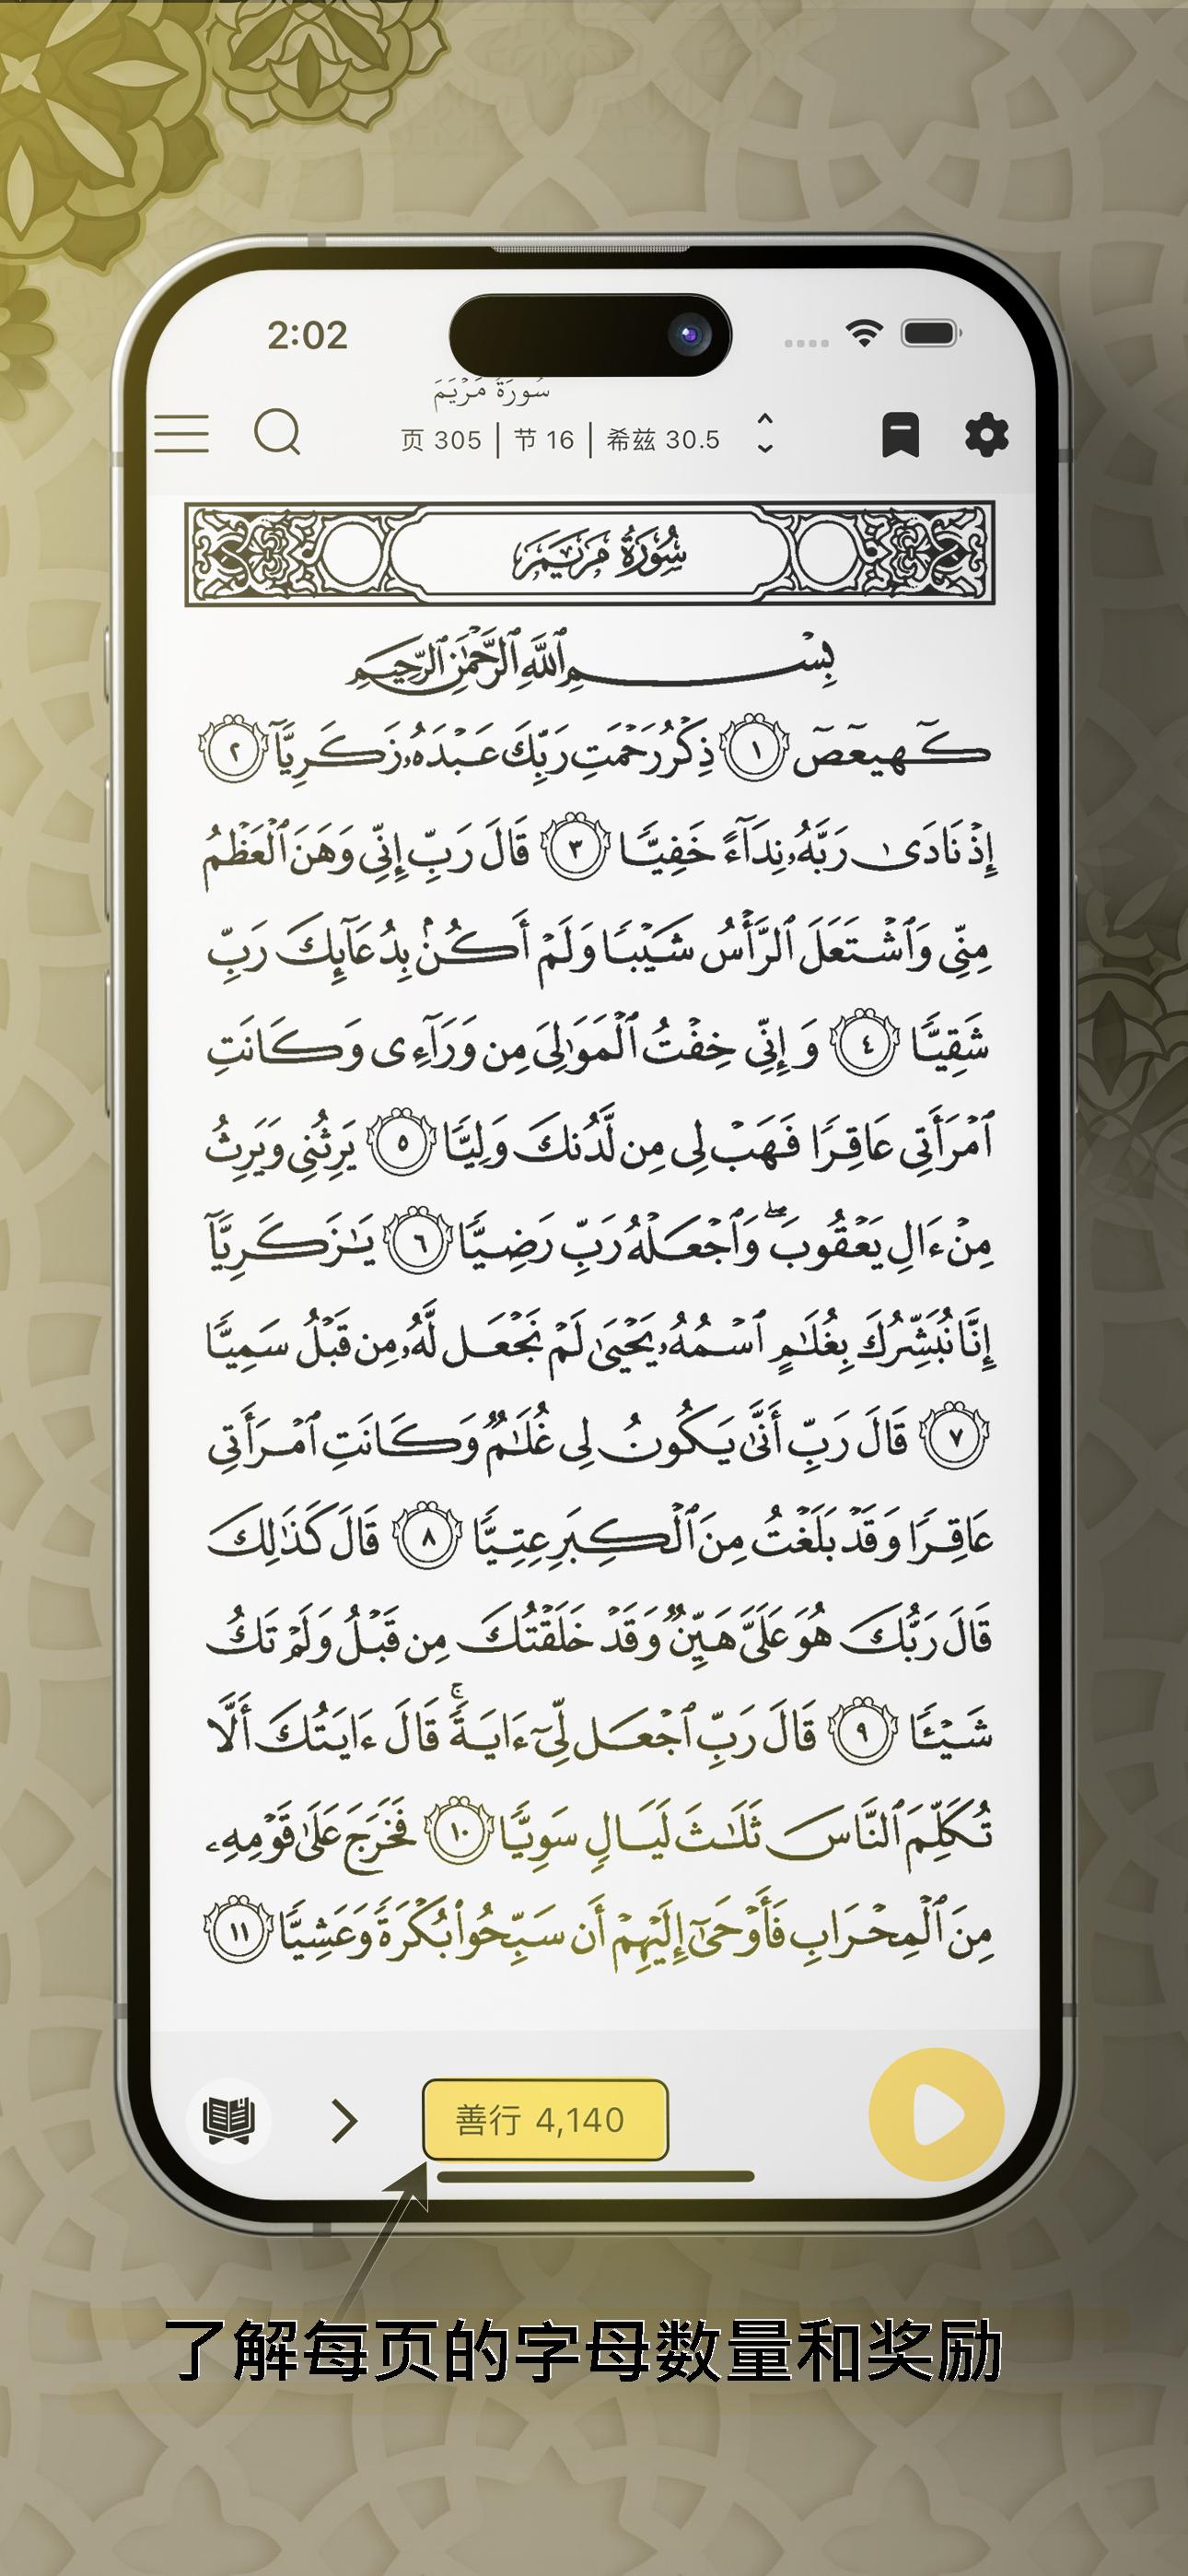 2:02
سُورَةُ مَرۡيَمَ
页 305 | 节 16 | 希兹 30.5
سُورَةُ مَرۡيَمَ
بِسۡمِ ٱللَّهِ ٱلرَّحۡمَٰنِ ٱلرَّحِيمِ
كٓهيعٓصٓ ١ ذِكۡرُ رَحۡمَتِ رَبِّكَ عَبۡدَهُۥ زَكَرِيَّآ ٢
إِذۡ نَادَىٰ رَبَّهُۥ نِدَآءً خَفِيّٗا ٣ قَالَ رَبِّ إِنِّي وَهَنَ ٱلۡعَظۡمُ
مِنِّي وَٱشۡتَعَلَ ٱلرَّأۡسُ شَيۡبٗا وَلَمۡ أَكُنۢ بِدُعَآئِكَ رَبِّ
شَقِيّٗا ٤ وَإِنِّي خِفۡتُ ٱلۡمَوَٰلِيَ مِن وَرَآءِي وَكَانَتِ
ٱمۡرَأَتِي عَاقِرٗا فَهَبۡ لِي مِن لَّدُنكَ وَلِيّٗا ٥ يَرِثُنِي وَيَرِثُ
مِنۡ ءَالِ يَعۡقُوبَۖ وَٱجۡعَلۡهُ رَبِّ رَضِيّٗا ٦ يَٰزَكَرِيَّآ
إِنَّا نُبَشِّرُكَ بِغُلَٰمٍ ٱسۡمُهُۥ يَحۡيَىٰ لَمۡ نَجۡعَل لَّهُۥ مِن قَبۡلُ سَمِيّٗا
٧ قَالَ رَبِّ أَنَّىٰ يَكُونُ لِي غُلَٰمٞ وَكَانَتِ ٱمۡرَأَتِي
عَاقِرٗا وَقَدۡ بَلَغۡتُ مِنَ ٱلۡكِبَرِ عِتِيّٗا ٨ قَالَ كَذَٰلِكَ
قَالَ رَبُّكَ هُوَ عَلَيَّ هَيِّنٞ وَقَدۡ خَلَقۡتُكَ مِن قَبۡلُ وَلَمۡ تَكُ
شَيۡـٔٗا ٩ قَالَ رَبِّ ٱجۡعَل لِّيٓ ءَايَةٗۚ قَالَ ءَايَتُكَ أَلَّا
تُكَلِّمَ ٱلنَّاسَ ثَلَٰثَ لَيَالٖ سَوِيّٗا ١٠ فَخَرَجَ عَلَىٰ قَوۡمِهِۦ
مِنَ ٱلۡمِحۡرَابِ فَأَوۡحَىٰٓ إِلَيۡهِمۡ أَن سَبِّحُواْ بُكۡرَةٗ وَعَشِيّٗا ١١
善行 4,140
了解每页的字母数量和奖励